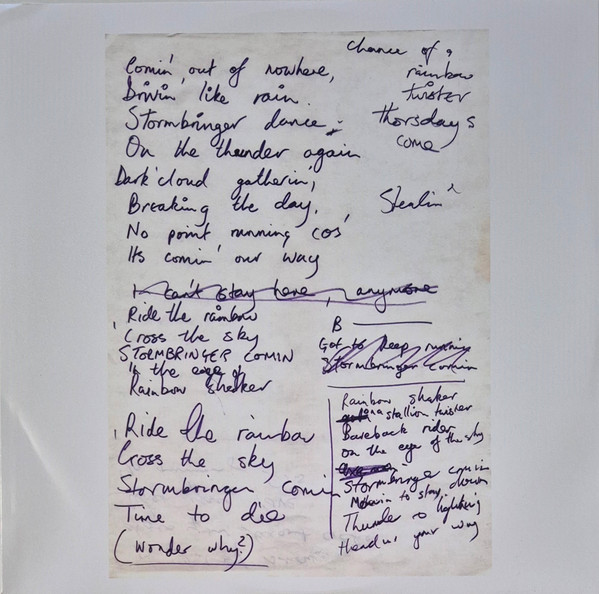 Comin' out of nowhere,
Drivin' like rain.
Stormbringer dance,
On the thunder again
Dark cloud gatherin',
Breaking the day,
No point running cos'
Its comin' our way
I can't stay here, anymore
Ride the rainbow
Cross the sky
STORMBRINGER COMIN
In the eye of
Rainbow Shaker
Ride the rainbow
Cross the sky
Stormbringer comin
Time to die
(wonder why?)
Chance of a
rainbow
twister
thorsdays
come
Stealin'
B
Got to keep running
Stormbringer comin
Rainbow shaker
on a stallion twister
Bareback rider
on the eye of the sky
Stormbringer comin down
to stay
Thunder & lightning
Heading your way